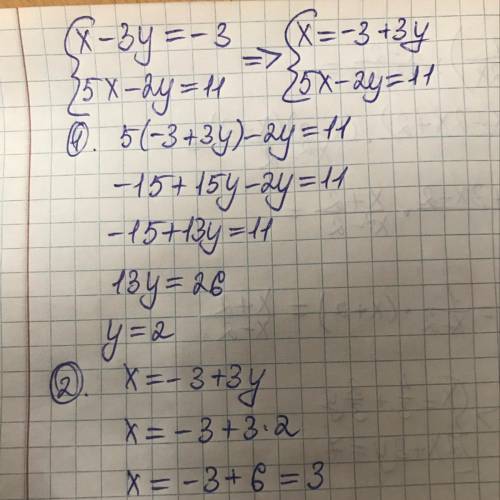 x-3y=-3 => x=-3+3y
5x-2y=11 5x-2y=11
1. 5(-3+3y)-2y=11
-15+15y-2y=11
-15+13y=11
13y=26
y=2
2. x=-3+3y
x=-3+3·2
x=-3+6=3